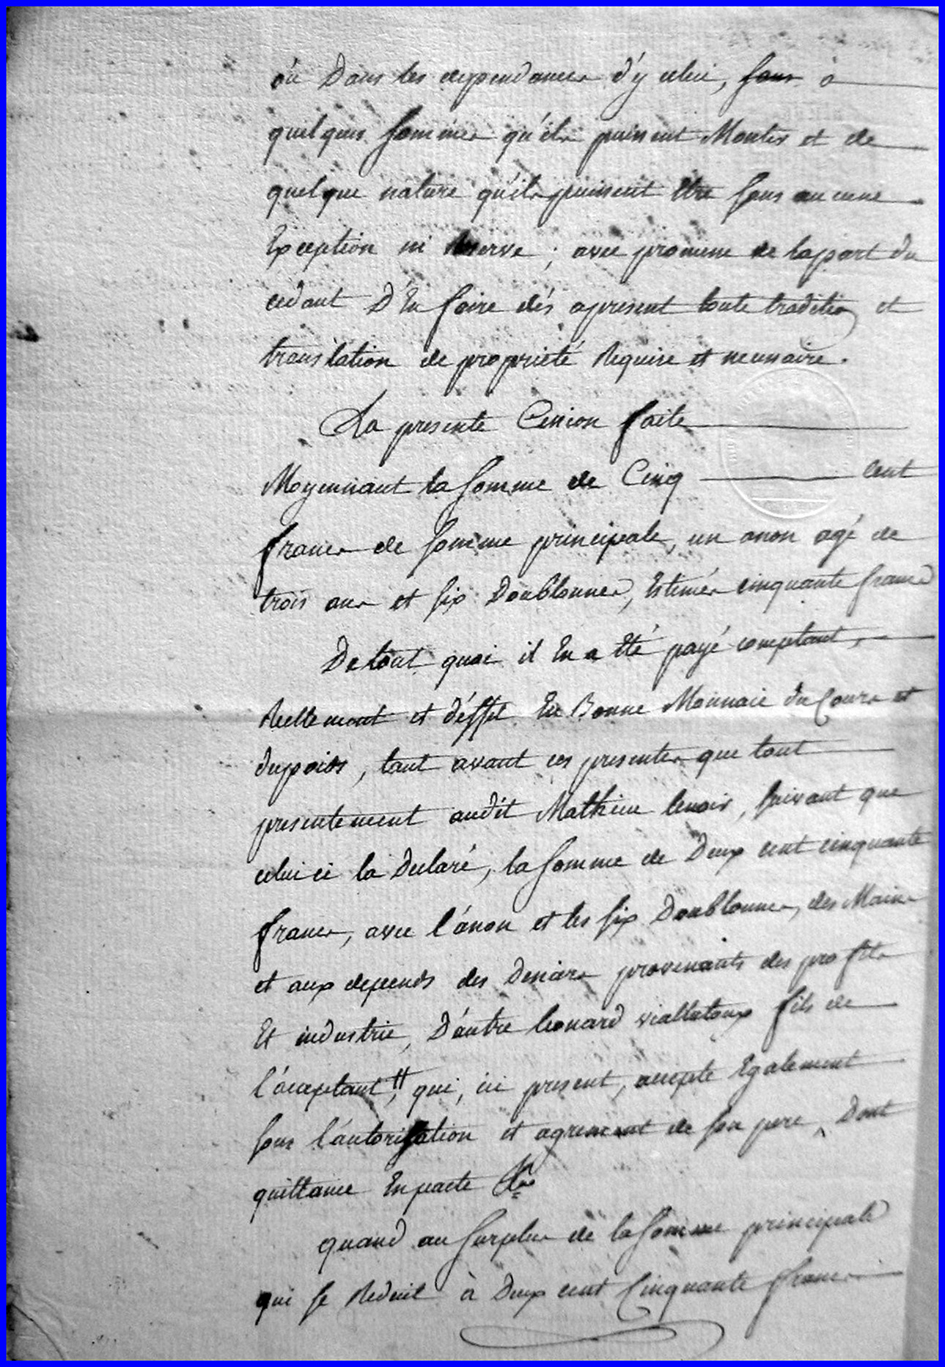 ou Dans les dependances d'y celui, sans à
quelques sommes qu'ils puissent Monter et de
quelque nature qu'ils puissent Etre sans aucune
Exception ni Reserve ; avec promesse de lapart du
cedant D'En faire dés apresent toute tradition et
translation de propriété Requise et necessaire.
La presente Cession faite
Moyennant la somme de Cinq cent
francs de somme principale, un anon agé de
trois ans et six Doublonnes, Estimés cinquante francs
De tout quoi il En a Eté payé comptant,
Reellement et d'éffet En Bonne Monnaie du Cours et
dupoids, tant avant ces presentes que tout
presentement audit Mathieu lenoir, suivant que
celui ci la Déclaré, la somme de Deux cent cinquante
francs, avec l'ánon et les six Doublonnes, des Mains
et aux depends des Deniers provenants des profits
Et industrie, D'autre leonard vialletoux fils de
l'acceptant, qui, ici present, accepte Egalement
sous l'autorisation et agrement de son pere, Dont
quittance En pacte
quand au surplus de la somme principale
qui se Reduit à Deux cent Cinquante francs